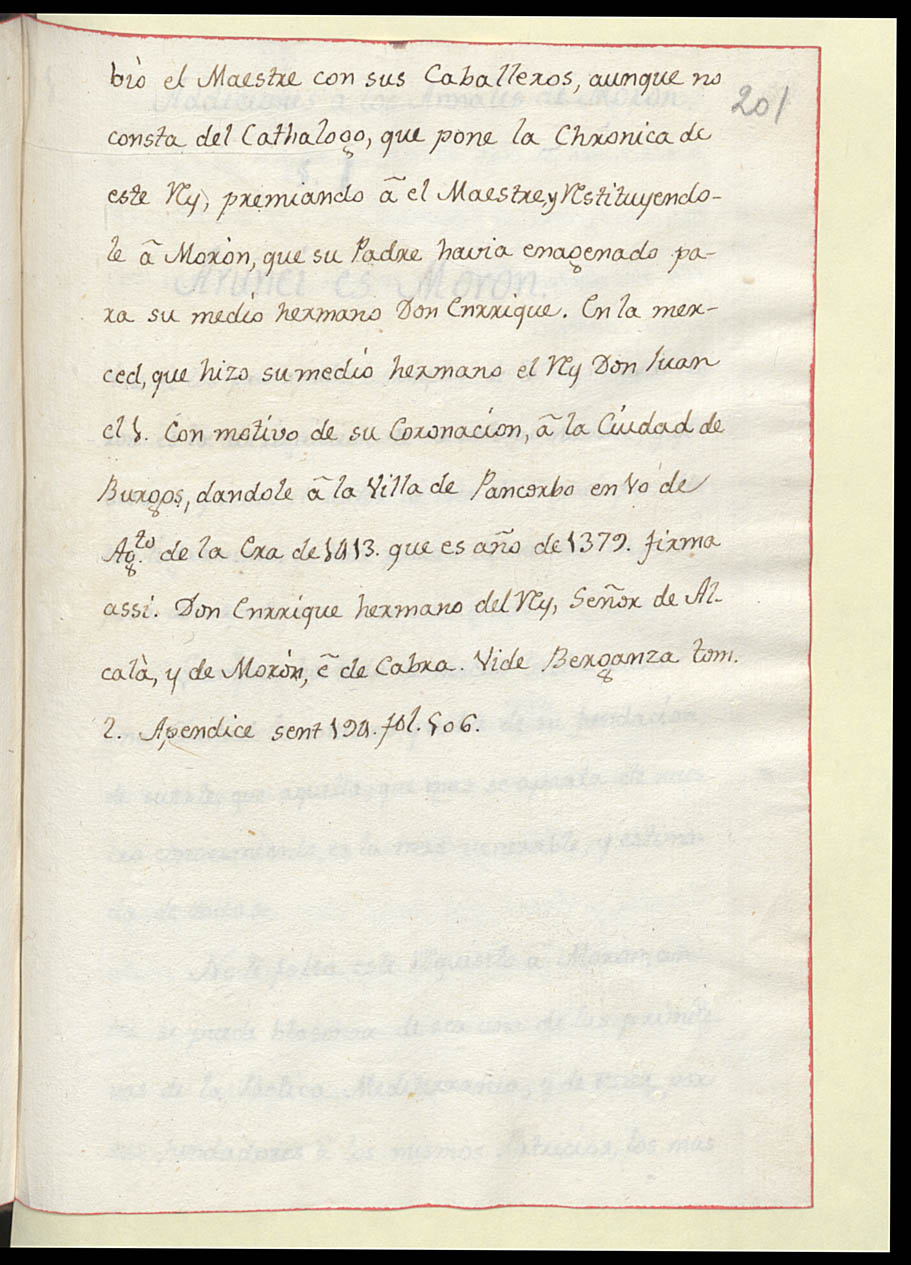 201
biò el Maestre con sus Caballeros, aunque no
consta del Cathalogo, que pone la Chronica de
este Rey, premiando ã el Maestre, y Restituyendo-
le ã Moròn, que su Padre havia enagenado pa-
ra su medio hermano Don Enrrique. En la mer-
ced, que hizo su medio hermano el Rey Don Juan
el 1. Con motivo de su Coronacion, ã la Ciudad de
Burgos, dandole ã la Villa de Pancorbo en 10 de
Ag.to de la Era de 1413. que es año de 1379. firma
assi. Don Enrrique hermano del Rey, Señor de Al-
calà, y de Moròn, ẽ de Cabra. Vide Berganza tom.
2. Apendice sent 194. fol. 506.